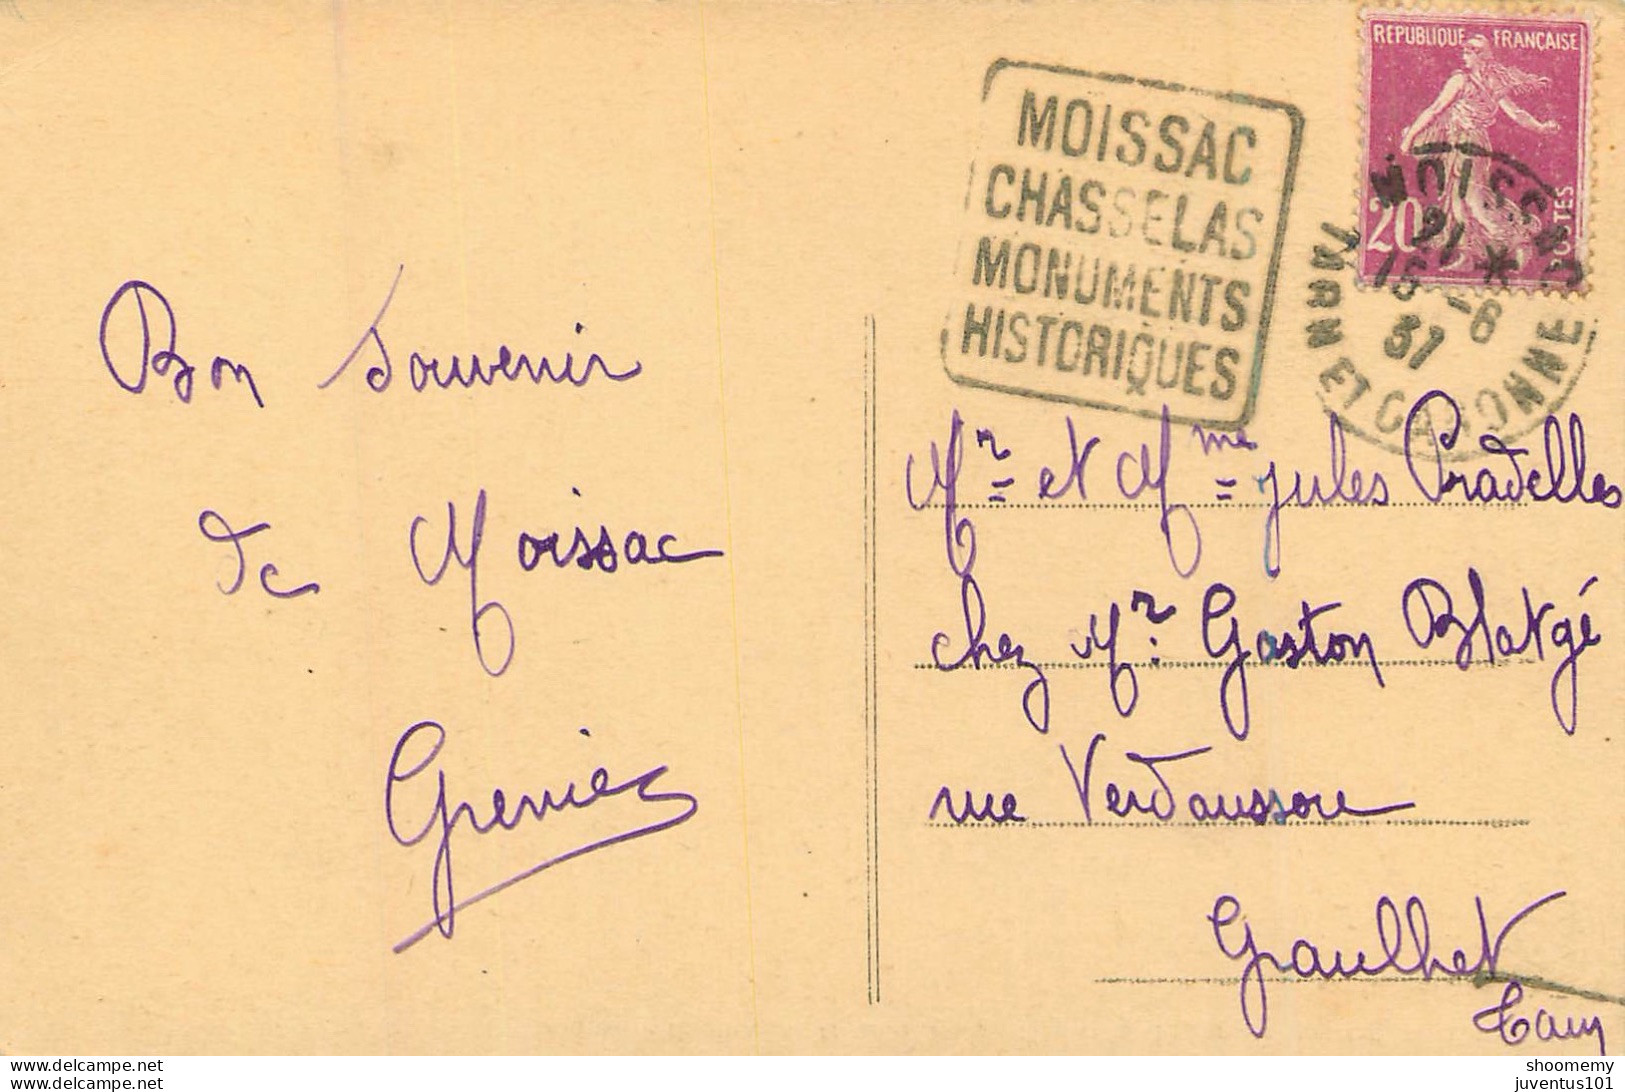 REPUBLIQUE FRANÇAISE
20
POSTES
MOISSAC
CHASSELAS
MONUMENTS
HISTORIQUES
MOISSAC
21 *
15 -6
37
TARN ET GARONNE
Bon Souvenir
de Moissac
Grenier
Mr et Mme Jules Pradelles
chez Mr. Gaston Blatgé
rue Verdaussou
Graulhet
Tarn
© delcampe.net
© delcampe.net
shoomemy
juventus101